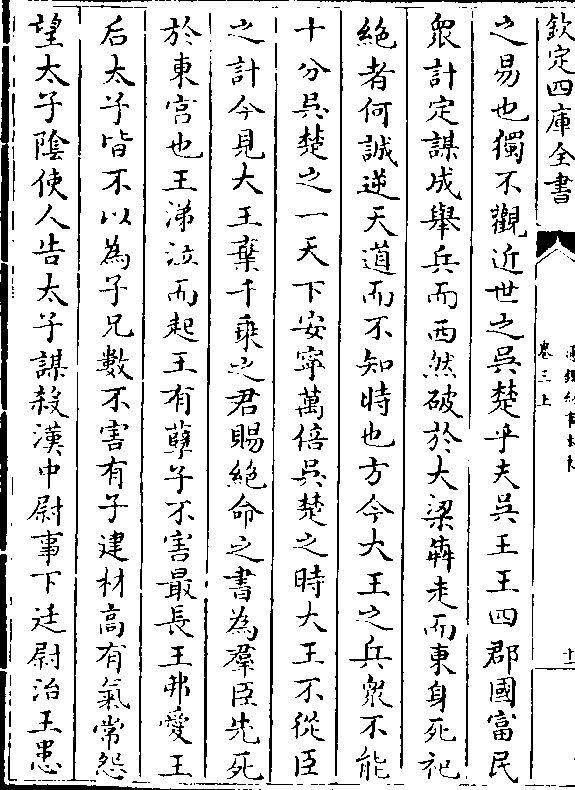 欽定四庫全書
卷三上
之易也獨不觀近世之吳楚乎夫吳王王四郡國富民
衆計定謀成舉兵而西然破於大梁犇走而東身死祀
絶者何誠逆天道而不知時也方今大王之兵衆不能
十分吳楚之一天下安寧萬倍吳楚之時大王不從臣
之計今見大王棄千乗之君賜絶命之書為羣臣先死
於東宫也王涕泣而起王有孽子不害最長王弗愛王
后太子皆不以為子兄數不害有子建材高有氣常怨
望太子隂使人告太子謀殺漢中尉事下廷尉治王患